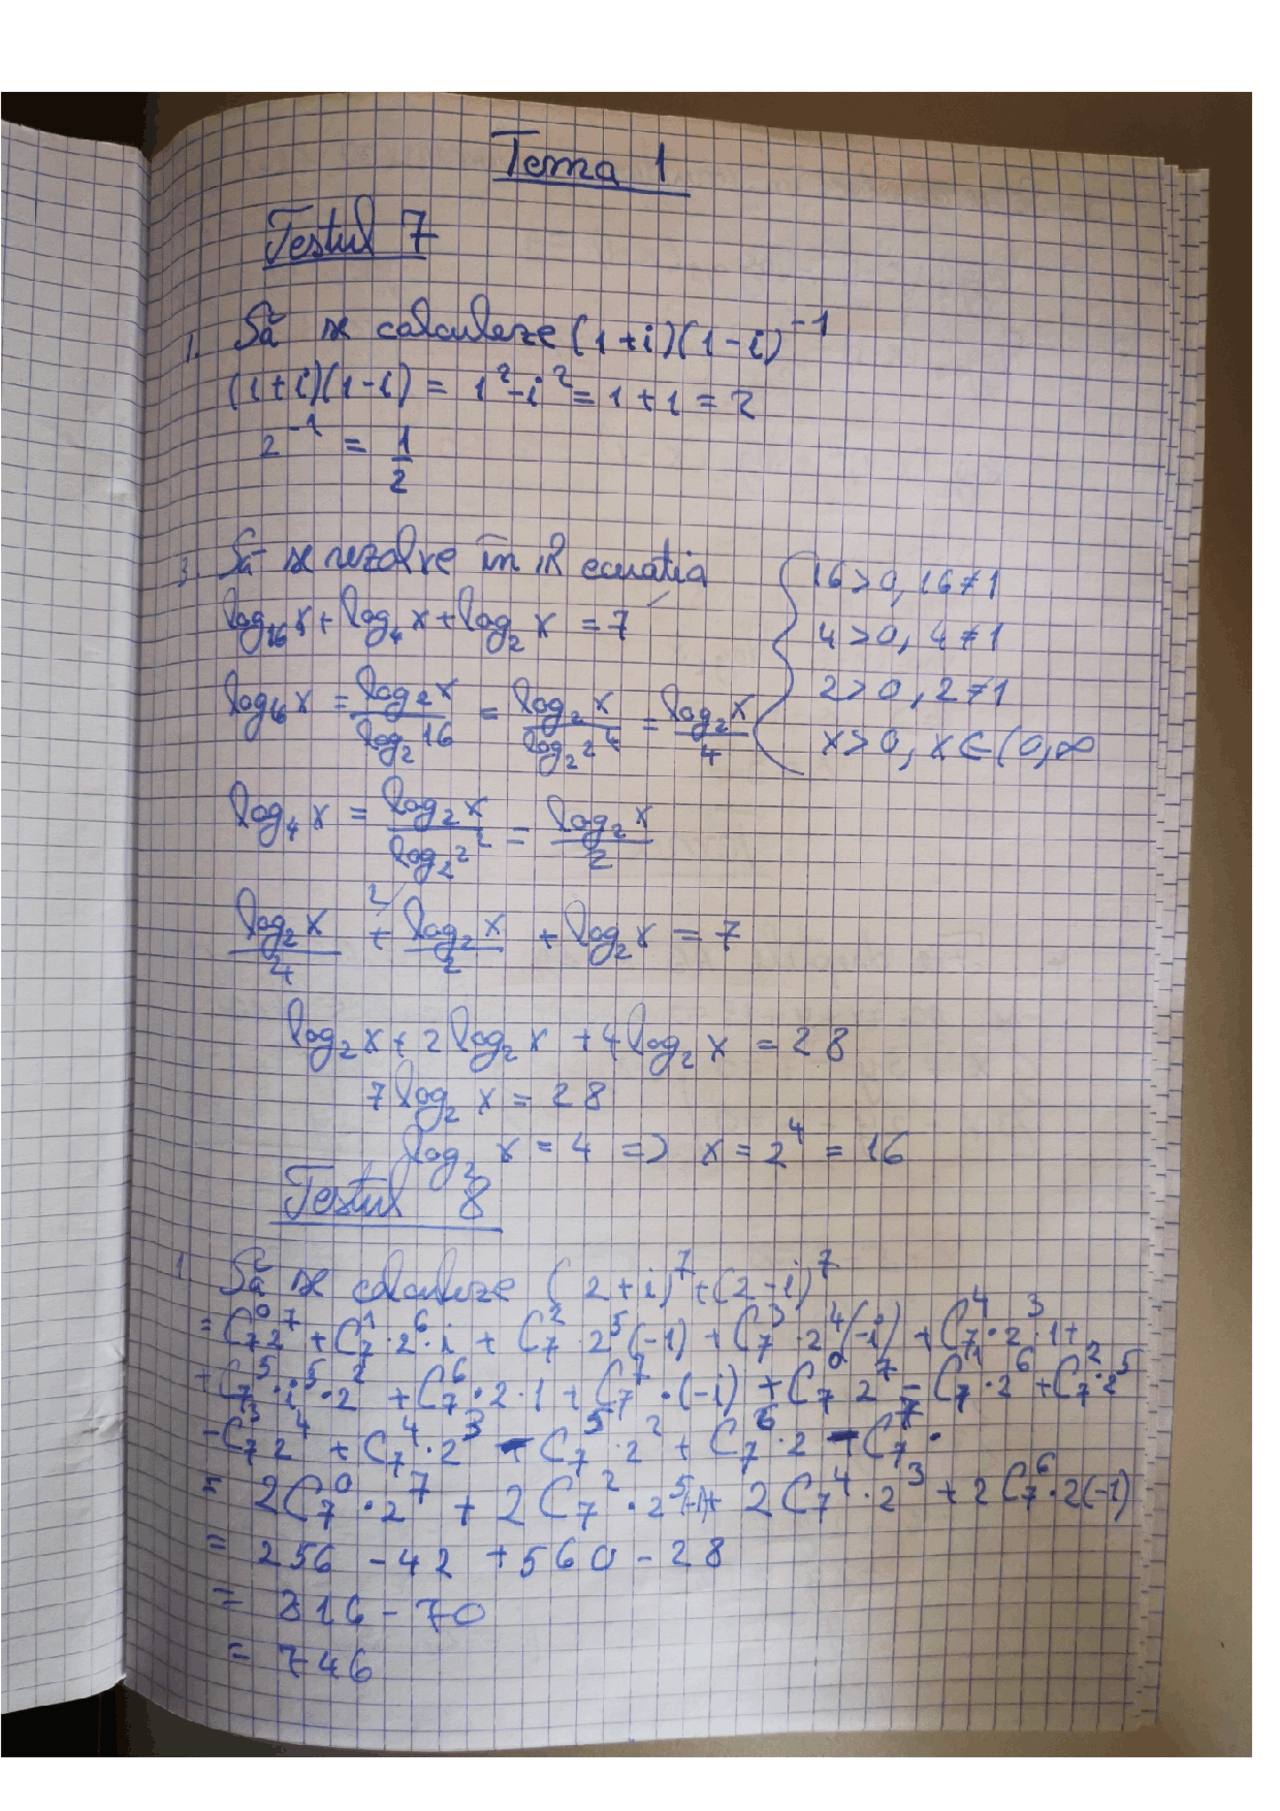 Tema 1
Testul 7
1. Să se calculeze (1+i)(1-i)^-1
(1+i)(1-i) = 1^2-i^2 = 1+1 = 2
2^-1 = 1/2
3. Să se rezolve în R ecuația
log_16 x + log_4 x + log_2 x = 7
{ 16>0, 16≠1
4>0, 4≠1
2>0, 2≠1
x>0, x∈(0,∞
log_16 x = log_2 x / log_2 16 = log_2 x / log_2 2^4 = log_2 x / 4
log_4 x = log_2 x / log_2 2^2 = log_2 x / 2
log_2 x / 4 + 2) log_2 x / 2 + log_2 x = 7
log_2 x + 2 log_2 x + 4 log_2 x = 28
7 log_2 x = 28
log_2 x = 4 => x = 2^4 = 16
Testul 8
1 Să se calculeze (2+i)^7+(2-i)^7
= C_7^0 2^7 + C_7^1 · 2^6 · i + C_7^2 · 2^5 (-1) + C_7^3 · 2^4 (-i) + C_7^4 · 2^3 · 1 +
+ C_7^5 · i^5 · 2^2 + C_7^6 · 2 · 1 + C_7^7 · (-i) + C_7^0 2^7 - C_7^1 · 2^6 + C_7^2 · 2^5
- C_7^3 2^4 + C_7^4 · 2^3 - C_7^5 · 2^2 + C_7^6 · 2 - C_7^7 ·
= 2 C_7^0 · 2^7 + 2 C_7^2 · 2^5 (-1) + 2 C_7^4 · 2^3 + 2 C_7^6 · 2 (-1)
= 256 - 42 + 560 - 28
= 816 - 70
= 746